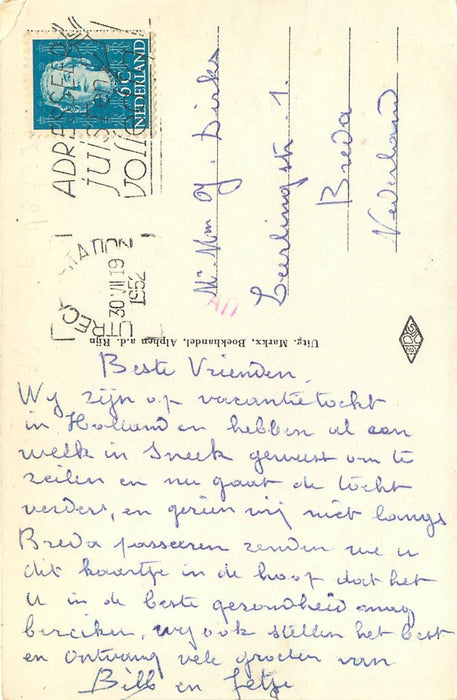 6 C
NEDERLAND
ADRESSEER
JUIST EN
VOLLEDIG
UTRECHT STATION
30 VII 19
1952
Mr Mvr G. Dirks
Leerlingstr. 1.
Breda
Nederland
Uitg. Markx, Boekhandel, Alphen a.d. Rijn
Beste Vrienden,
Wij zijn op vacantietocht
in Holland en hebben al een
week in Sneek geweest om te
zeilen en nu gaat de tocht
verders, en gezien wij niet langs
Breda passeeren zenden we u
dit kaartje in de hoop dat het
U in de beste gezondheid mag
bereiken, wij ook stellen het best
en ontvang vele groeten van
Bill en Jetje